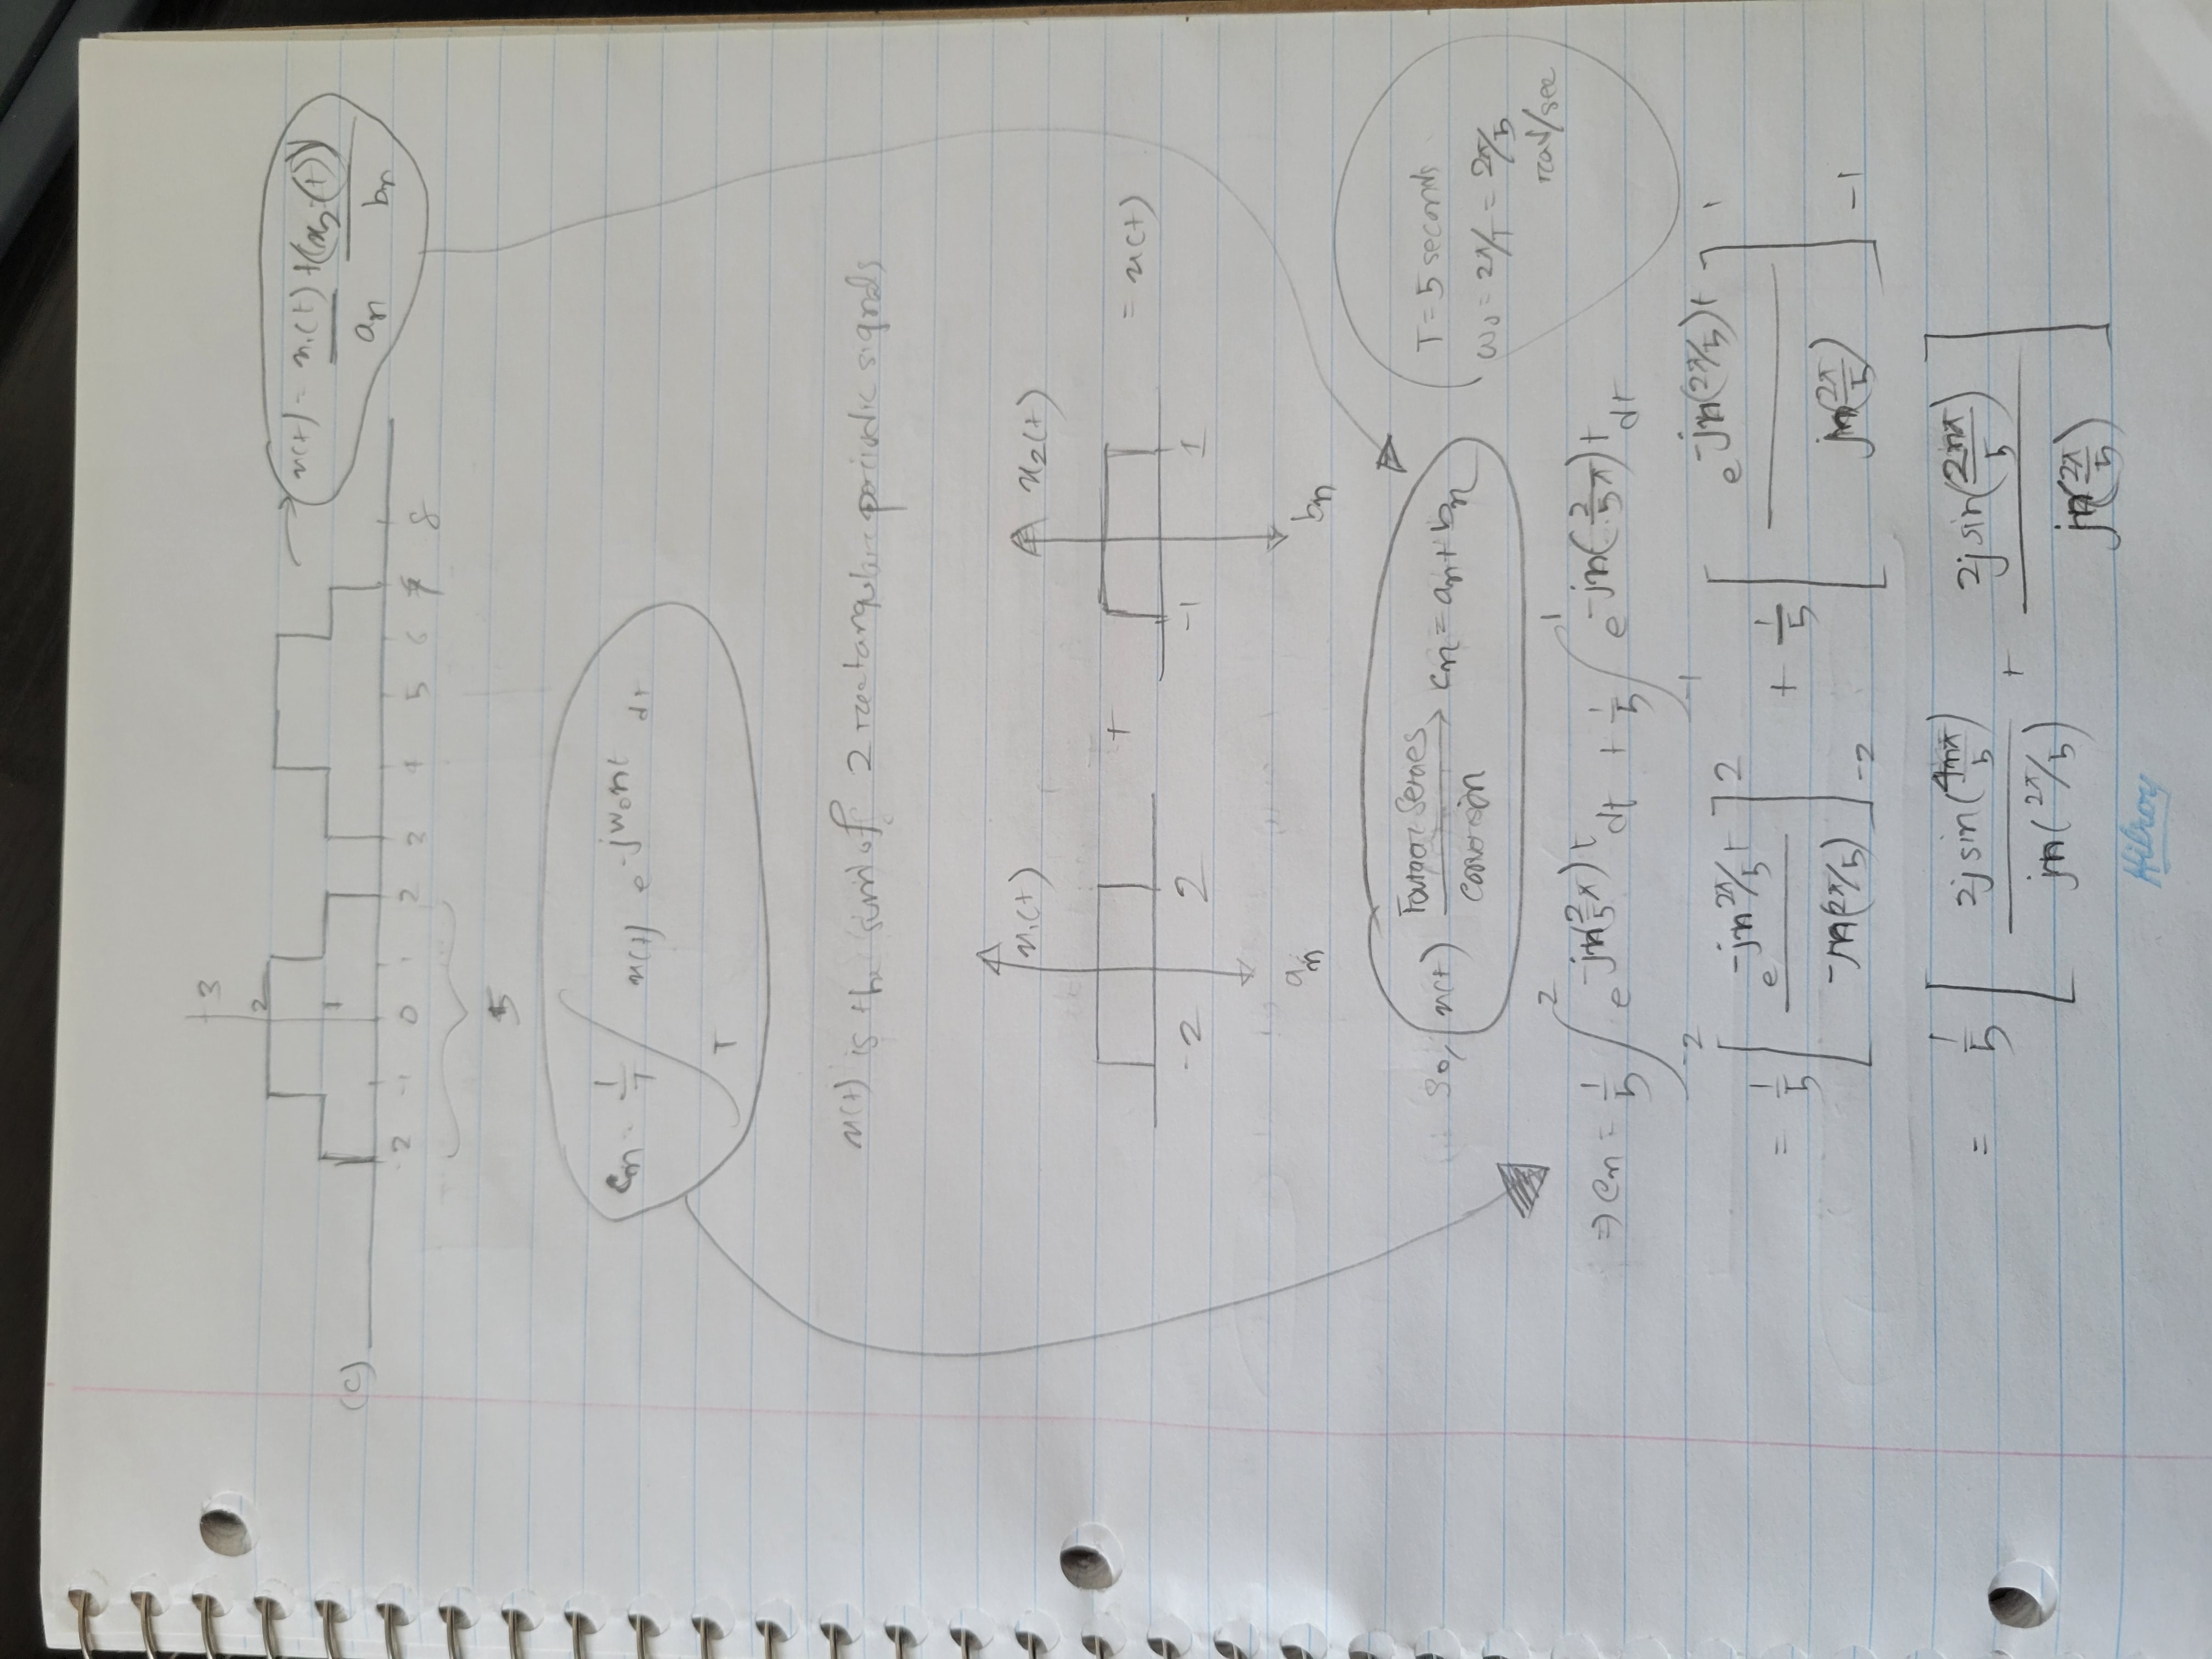 3
2
1
(c)
x(t) = x₁(t) + (x₂(t))
aₙ bₙ
-2 -1 0 1 2 3 4 5 6 7 8
5
cₙ = 1/T ∫_T x(t) e^(-jω₀nt) dt
x(t) is the sum of 2 rectangular periodic signals
x₁(t) x₂(t)
+ = x(t)
-2 2 -1 1
aₙ bₙ
So, x(t) Fourier Series conversion → cₙ = aₙ + bₙ
T = 5 seconds
ω₀ = 2π/T = 2π/5
rad/sec
⇒ cₙ = 1/5 ∫_-2^2 e^(-jn(2/5 π)t) dt + 1/5 ∫_-1^1 e^(-jn(2/5 π)t) dt
= 1/5 [ e^(-jn2π/5 t) / -jn(2π/5) ]_-2^2 + 1/5 [ e^(-jn(2π/5)t) / jn(2π/5) ]_-1^1
= 1/5 [ 2j sin(4nπ/5) / jn(2π/5) + 2j sin(2nπ/5) / jn(2π/5) ]
Hilroy